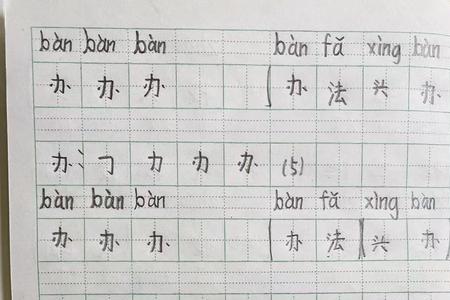 bàn bàn bàn bàn fǎ xìng bàn
办 办 办 (办 法 兴 办
办、㇆ 力 办 办 (5)
bàn bàn bàn bàn fǎ xìng bàn
办 办 办 (办 法)(兴 办)